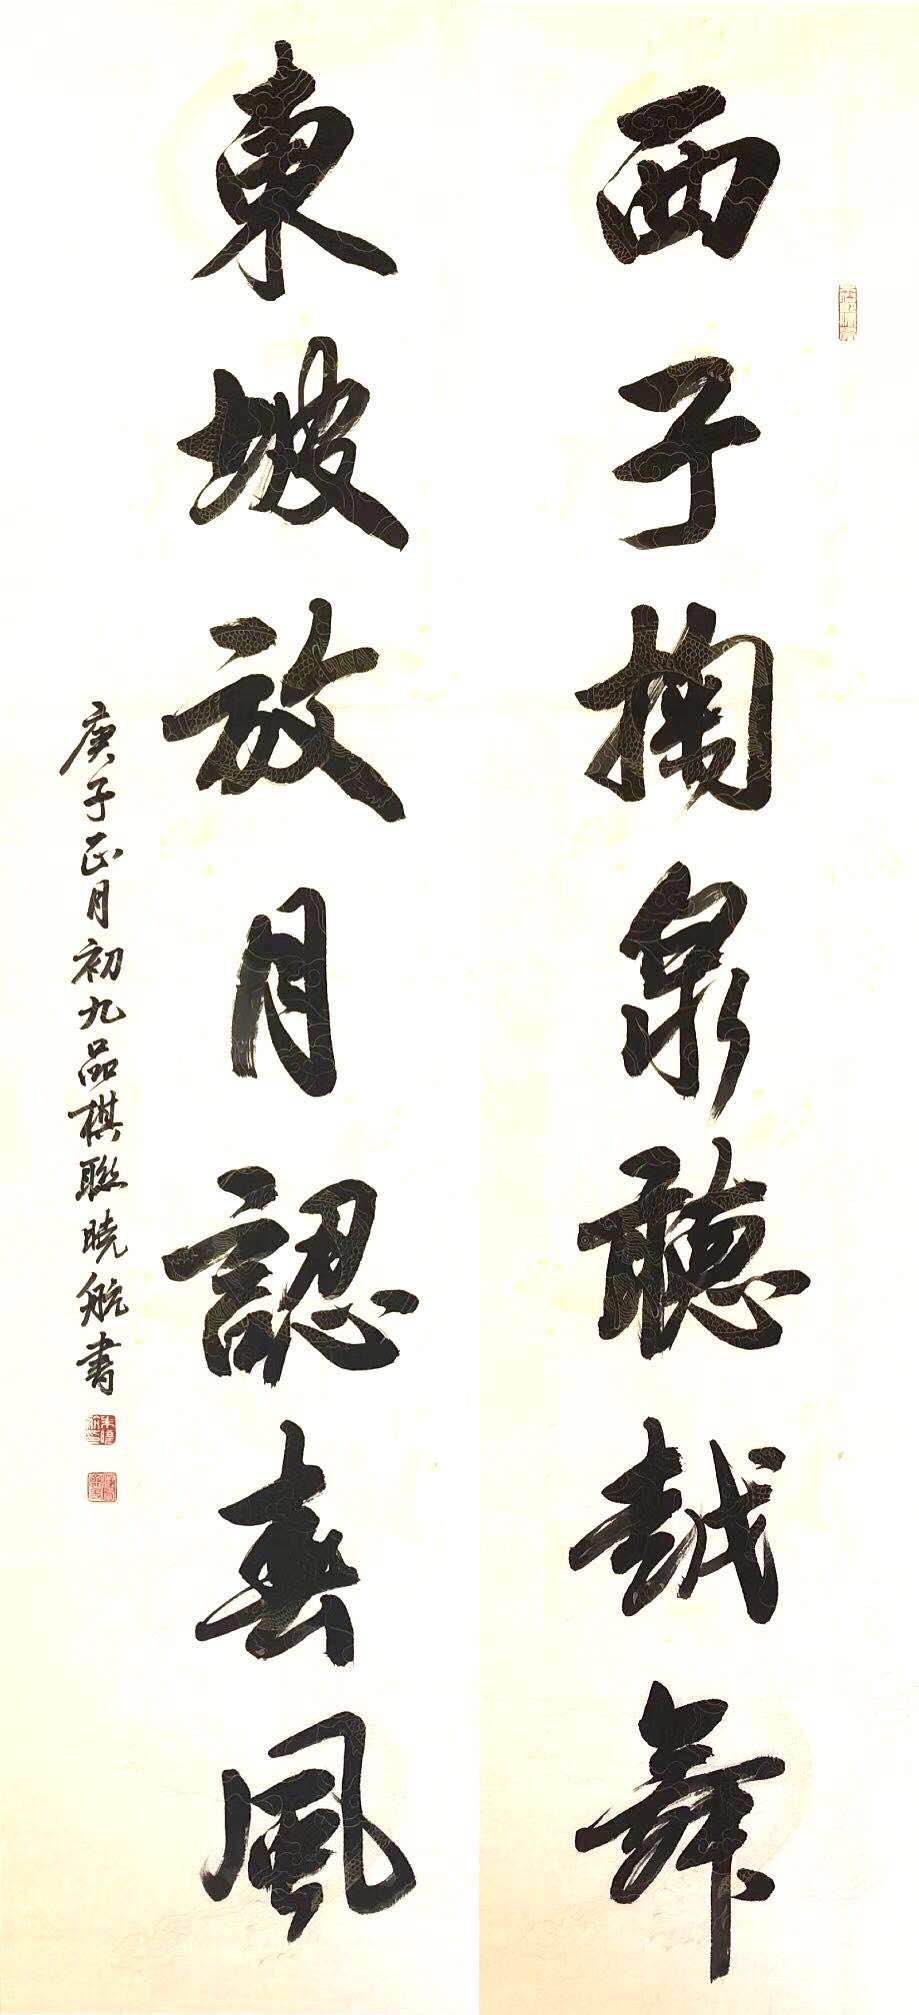 西子掬泉聽越舞
東坡放月認春風
庚子正月初九品棋聯曉航書